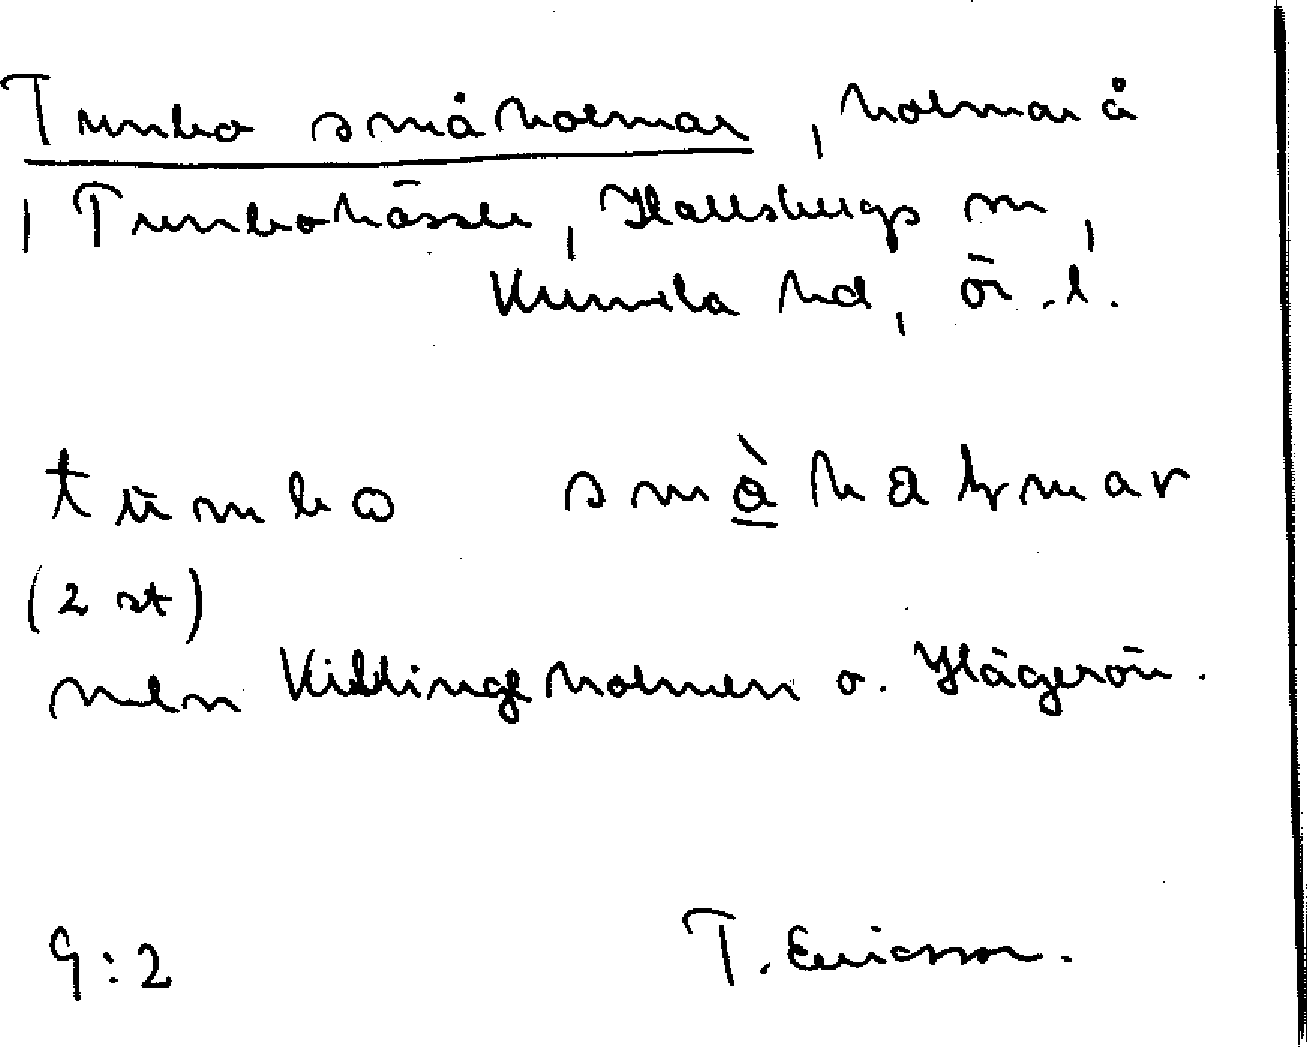 Tunbo småholmar, holmar å
, Tunbohässle, Hallsbergs sn,
Kumla hd, ör. l.
småhalmar
(2 st)
mln Killingholmen o. Hägerön.
9:2 T. Ericsson.